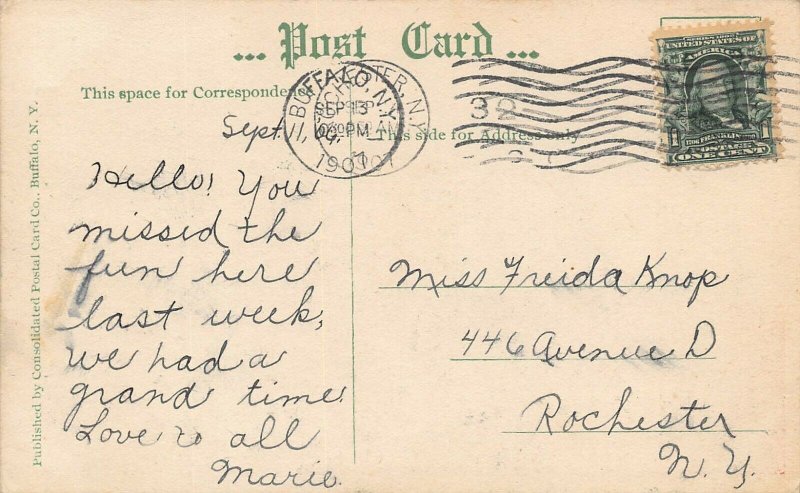 ... Post Card ...
This space for Correspondence
This side for Address only
BUFFALO, N.Y.
SEP 13
PM
1907
32
SERIES 1902
UNITED STATES OF AMERICA
FRANKLIN
POSTAGE
1 ONE CENT 1
Sept. 11,
Hello! You
missed the
fun here
last week,
we had a
grand time.
Love to all
Marie.
Miss Freida Knop
446 Avenue D
Rochester
N. Y.
Published by Consolidated Postal Card Co., Buffalo, N. Y.